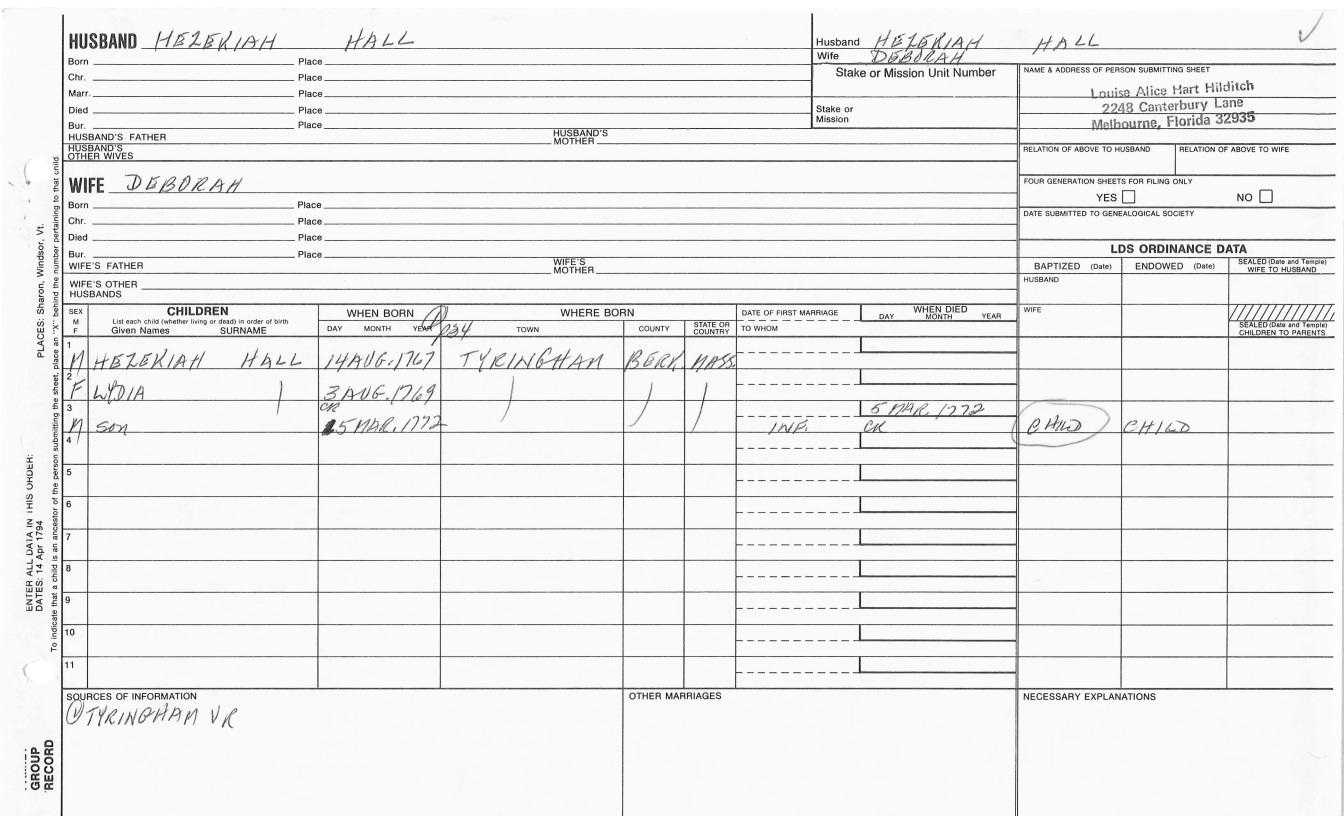 HUSBAND HEZEKIAH HALL
Born Place
Chr. Place
Marr. Place
Died Place
Bur. Place
HUSBAND'S FATHER HUSBAND'S MOTHER
HUSBAND'S OTHER WIVES
WIFE DEBORAH
Born Place
Chr. Place
Died Place
Bur. Place
WIFE'S FATHER WIFE'S MOTHER
WIFE'S OTHER HUSBANDS
Husband HEZEKIAH HALL
Wife DEBORAH
Stake or Mission Unit Number
Stake or Mission
NAME & ADDRESS OF PERSON SUBMITTING SHEET
Louise Alice Hart Hilditch
2248 Canterbury Lane
Melbourne, Florida 32935
RELATION OF ABOVE TO HUSBAND RELATION OF ABOVE TO WIFE
FOUR GENERATION SHEETS FOR FILING ONLY
YES NO
DATE SUBMITTED TO GENEALOGICAL SOCIETY
LDS ORDINANCE DATA
BAPTIZED (Date) ENDOWED (Date) SEALED (Date and Temple) WIFE TO HUSBAND
HUSBAND
WIFE
SEALED (Date and Temple) CHILDREN TO PARENTS
SEX M F
CHILDREN
List each child (whether living or dead) in order of birth
Given Names SURNAME
WHEN BORN
DAY MONTH YEAR
WHERE BORN
TOWN COUNTY STATE OR COUNTRY
DATE OF FIRST MARRIAGE
TO WHOM
WHEN DIED
DAY MONTH YEAR
1 M HEZEKIAH HALL 14 AUG. 1767 TYRINGHAM BERK. MASS.
2 F LYDIA 3 AUG. 1769
3 M SON CR 5 MAR. 1772 INF. 5 MAR. 1772 CR CHILD CHILD
4
5
6
7
8
9
10
11
SOURCES OF INFORMATION
① TYRINGHAM VR
OTHER MARRIAGES
NECESSARY EXPLANATIONS
ENTER ALL DATA IN THIS ORDER:
DATES: 14 Apr 1794 PLACES: Sharon, Windsor, Vt.
To indicate that a child is an ancestor of the person submitting the sheet, place an "X" behind the number pertaining to that child
GROUP
RECORD